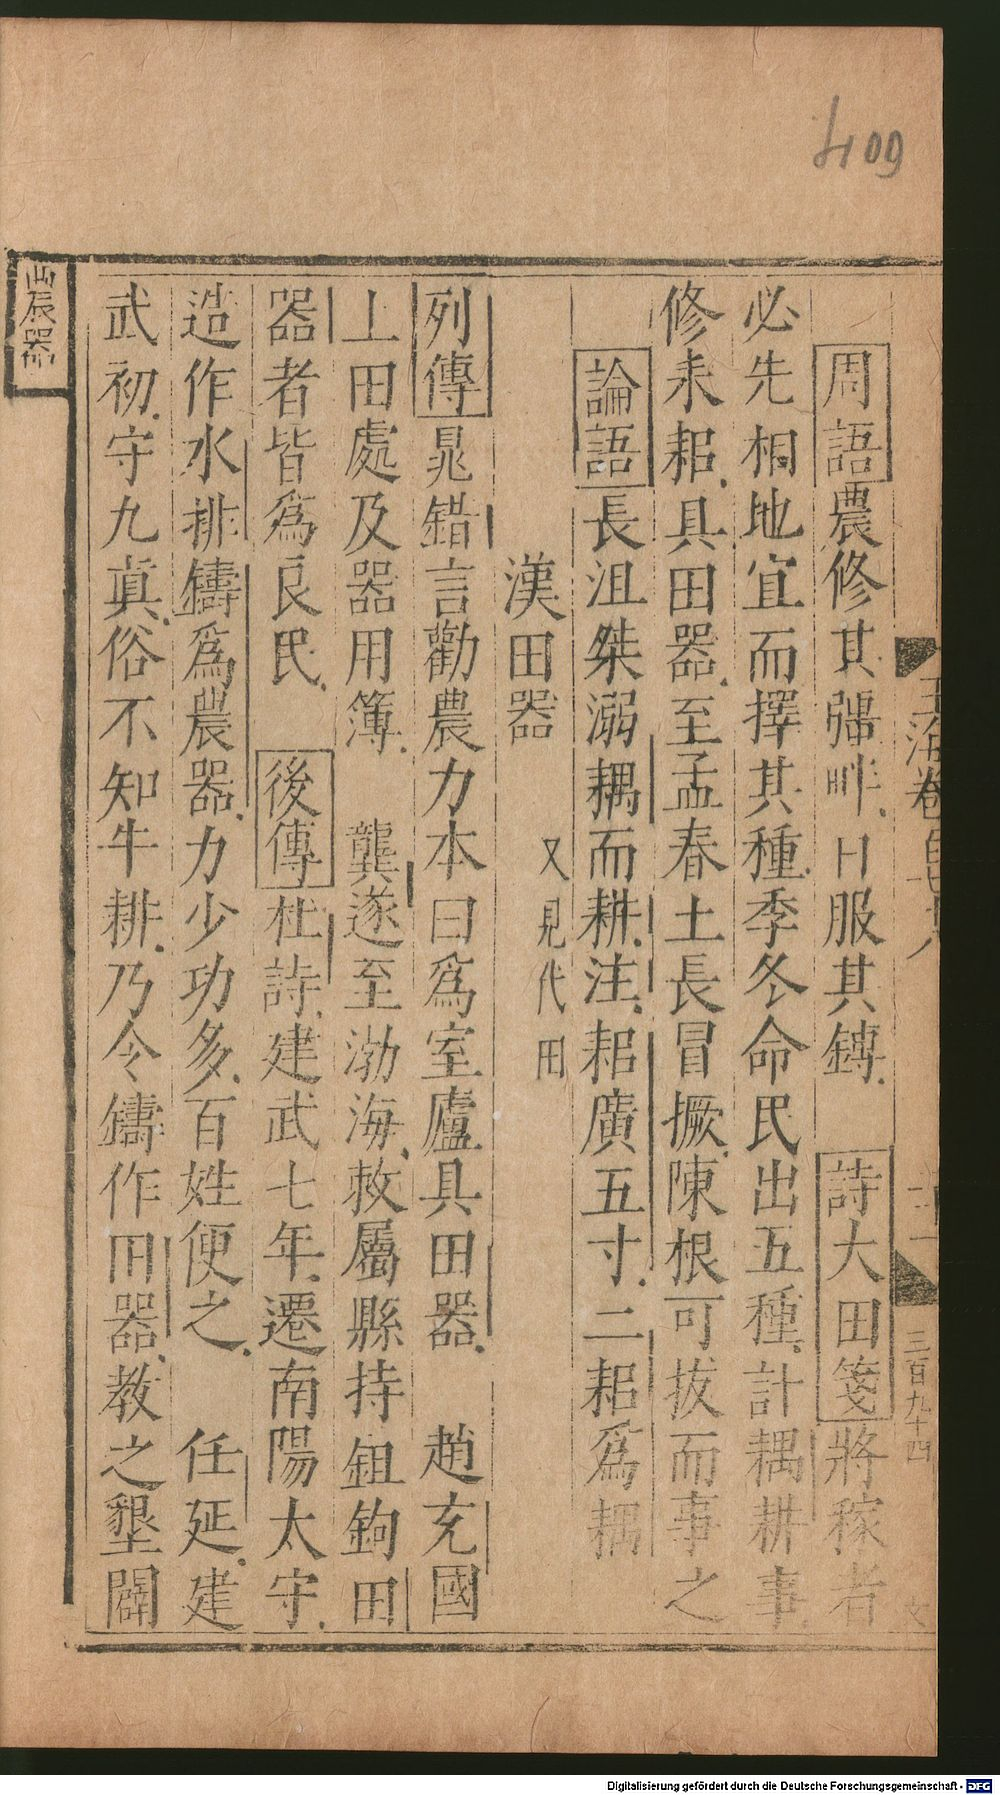 409
周語農修其疆畔日服其鎛 詩大田箋將稼者
必先相地宜而擇其種季冬命民出五種計耦耕事
修耒耜具田器至孟春土長冒橛陳根可拔而事之
論語長沮桀溺耦而耕注耜廣五寸二耜爲耦
漢田器 又見代田
列傳鼂錯言勸農力本曰爲室廬具田器 趙充國
上田處及器用簿 龔遂至渤海敕屬縣持鉏鉤田
器者皆爲良民 後傳杜詩建武七年遷南陽太守
造作水排鑄爲農器力少功多百姓便之 任延建
武初守九眞俗不知牛耕乃令鑄作田器教之墾闢
農器
玉海卷百七十八
三百九十四
Digitalisierung gefördert durch die Deutsche Forschungsgemeinschaft - DFG